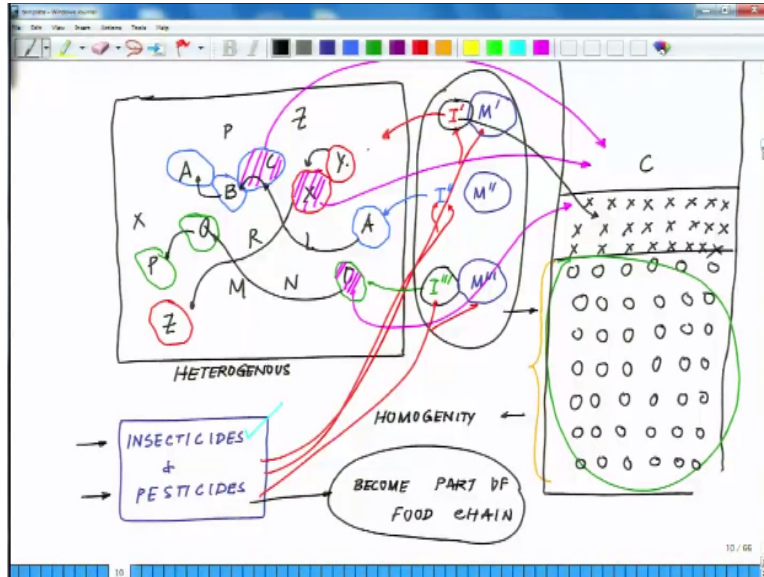 template - Windows Journal
File Edit View Insert Actions Tools Help
B I
P Z
A B C X Y
I' M'
C
X Q R L A
I'' M''
X X X X X X X
X X X X X X X
X X X X X X X
P M N O
I''' M'''
Z
O O O O O O
O O O O O O
O O O O O O
O O O O O O
O O O O O O
O O O O O O
O O O O O O
HETEROGENOUS
HOMOGENITY
INSECTICIDES
&
PESTICIDES
BECOME PART OF
FOOD CHAIN
10 / 66
10